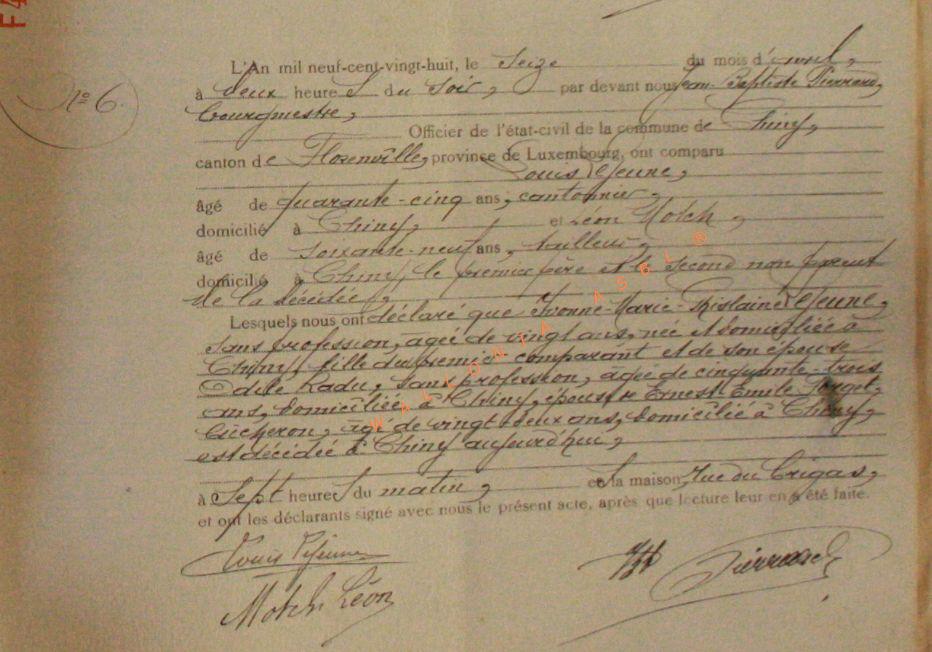 L'An mil neuf-cent-vingt-huit, le seize du mois d'avril,
No 6.
à deux heures du soir, par devant nous Jean-Baptiste Pierrard,
bourgmestre,
Officier de l'état-civil de la commune de Chiny,
canton de Florenville, province de Luxembourg, ont comparu
Louis Lejeune,
âgé de quarante-cinq ans, cantonnier,
domicilié à Chiny, et Léon Motch,
âgé de soixante-neuf ans, tailleur,
domicilié à Chiny, le premier père et le second non parent
de la décédée,
Lesquels nous ont déclaré que Yvonne-Marie-Ghislaine Lejeune,
sans profession, agée de vingt ans, née et domiciliée à
Chiny, fille du premier comparant et de son épouse
Odile Radu, sans profession, agée de cinquante-trois
ans, domiciliée à Chiny, épouse de Ernest Emile
bûcheron, agé de vingt-deux ans, domicilié à Chiny,
est décédée à Chiny aujourd'hui,
à sept heures du matin, en sa maison, rue du
et ont les déclarants signé avec nous le présent acte, après que lecture leur en a été faite.
Louis Lejeune Pierrard
Motch Léon
WALLONIA ASBL ©